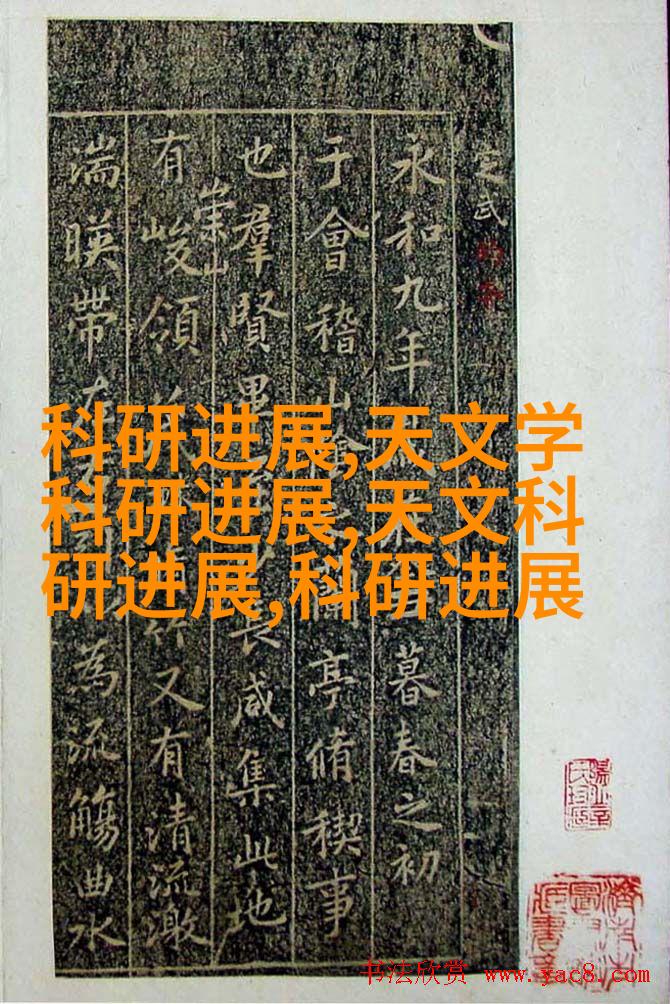 科研进展,天文学
科研进展,天文科
研进展,科研进展
定武
永和九年 暮春之初
于會稽山 亭脩稧事
也羣賢畢 長咸集此地
有崇山峻領 又有清流激
湍暎帶 為流觴曲水
书法欣赏 www.yac8.com